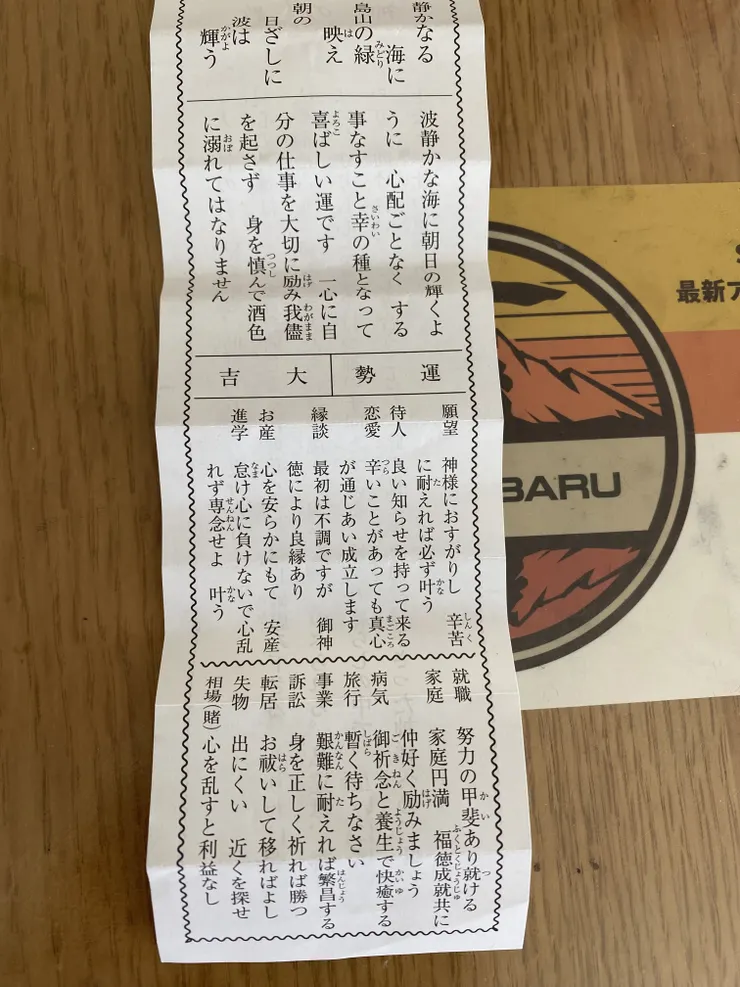 静かなる
海に
島山の緑
映え
朝の
日ざしに
波は
輝う
波静かな海に朝日の輝くよ
うに 心配ごとなく する
事なすこと幸の種となって
喜ばしい運です 一心に自
分の仕事を大切に励み我儘
を起さず 身を慎んで酒色
に溺れてはなりません
運勢 大吉
願望 神様におすがりし 辛苦
に耐えれば必ず叶う
待人 良い知らせを持って来る
恋愛 辛いことがあっても真心
が通じあい成立します
縁談 最初は不調ですが 御神
徳により良縁あり
お産 心を安らかにもて 安産
進学 怠け心に負けないで心乱
れず専念せよ 叶う
就職 努力の甲斐あり就ける
家庭 家庭円満 福徳成就共に
仲好く励みましょう
病気 御祈念と養生で快癒する
旅行 暫く待ちなさい
事業 艱難に耐えれば繁昌する
訴訟 身を正しく祈れば勝つ
転居 お祓いして移ればよし
失物 出にくい 近くを探せ
相場(賭) 心を乱すと利益なし
最新ア
BARU